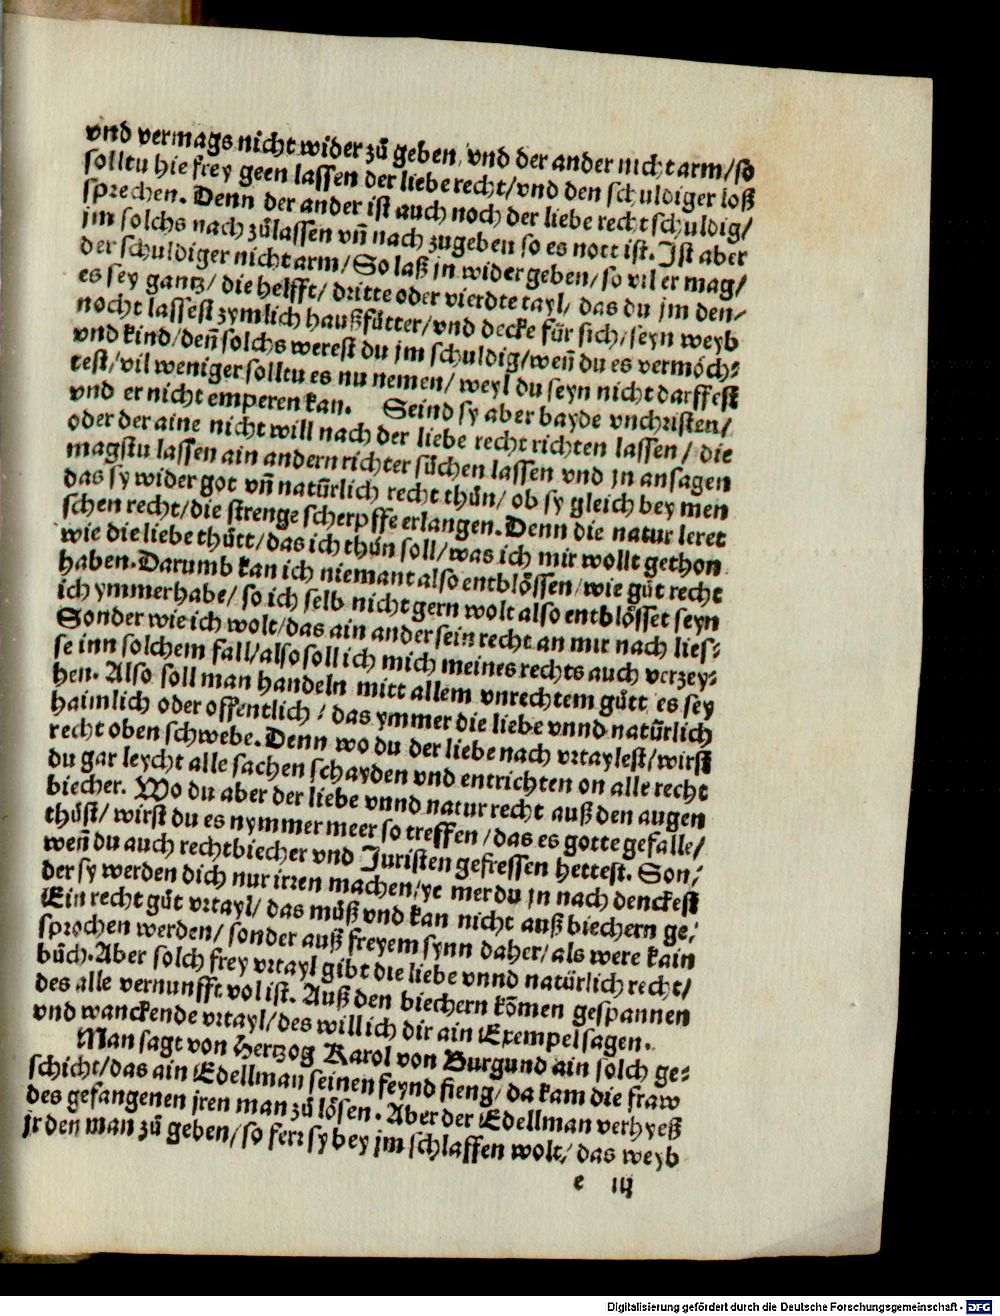 vnd vermags nicht wider zů geben/ vnd der ander nicht arm/ so
solltu hie frey geen lassen der liebe recht/ vnd den schuldiger loß
sprechen. Denn der ander ist auch noch der liebe recht schuldig/
jm solchs nach zůlassen vñ nach zugeben so es nott ist. Ist aber
der schuldiger nicht arm/ So laß jn wider geben/ so vil er mag/
es sey gantz/ die helfft/ dritte oder vierdte tayl/ das du jm den⸗
nocht lassest zymlich haußfůtter/ vnd decke für sich/ seyn weyb
vnd kind/ deñ solchs werest du jm schuldig/ weñ du es vermöch⸗
test/ vil weniger solltu es nu nemen/ weyl du seyn nicht darffest
vnd er nicht emperen kan. Seind sy aber bayde vnchristen/
oder der aine nicht will nach der liebe recht richten lassen/ die
magstu lassen ain andern richter sůchen lassen vnd jn ansagen
das sy wider got vñ natürlich recht thůn/ ob sy gleich bey men
schen recht/ die strenge scherpffe erlangen. Denn die natur leret
wie die liebe thůtt/ das ich thůn soll/ was ich mir wollt gethon
haben. Darumb kan ich niemant also entblössen/ wie gůt recht
ich ymmer habe/ so ich selb nicht gern wolt also entblösset seyn
Sonder wie ich wolt/ das ain ander sein recht an mir nach lies⸗
se inn solchem fall/ also soll ich mich meines rechts auch verzey⸗
hen. Also soll man handeln mitt allem vnrechtem gůtt es sey
haimlich oder offentlich/ das ymmer die liebe vnnd natürlich
recht oben schwebe. Denn wo du der liebe nach vrtaylest/ wirst
du gar leycht alle sachen schayden vnd entrichten on alle recht
biecher. Wo du aber der liebe vnnd natur recht auß den augen
thůst/ wirst du es nymmer meer so treffen/ das es gotte gefalle/
weñ du auch rechtbiecher vnd Juristen gefressen hettest. Son⸗
der sy werden dich nur irren machen/ ye mer du jn nach denckest
Ein recht gůt vrtayl/ das můß vnd kan nicht auß biechern ge⸗
sprochen werden/ sonder auß freyem synn daher/ als were kain
bůch. Aber solch frey vrtayl gibt die liebe vnnd natürlich recht/
des alle vernunfft vol ist. Auß den biechern kõmen gespannen
vnd wanckende vrtayl/ des will ich dir ain Exempel sagen.
Man sagt von Hertzog Karol von Burgund ain solch ge⸗
schicht/ das ain Edellman seinen feynd fieng/ da kam die fraw
des gefangenen jren man zů lösen. Aber der Edellman verhyeß
jr den man zů geben/ so ferr sy bey jm schlaffen wolt/ das weyb
e iij
Digitalisierung gefördert durch die Deutsche Forschungsgemeinschaft - DFG